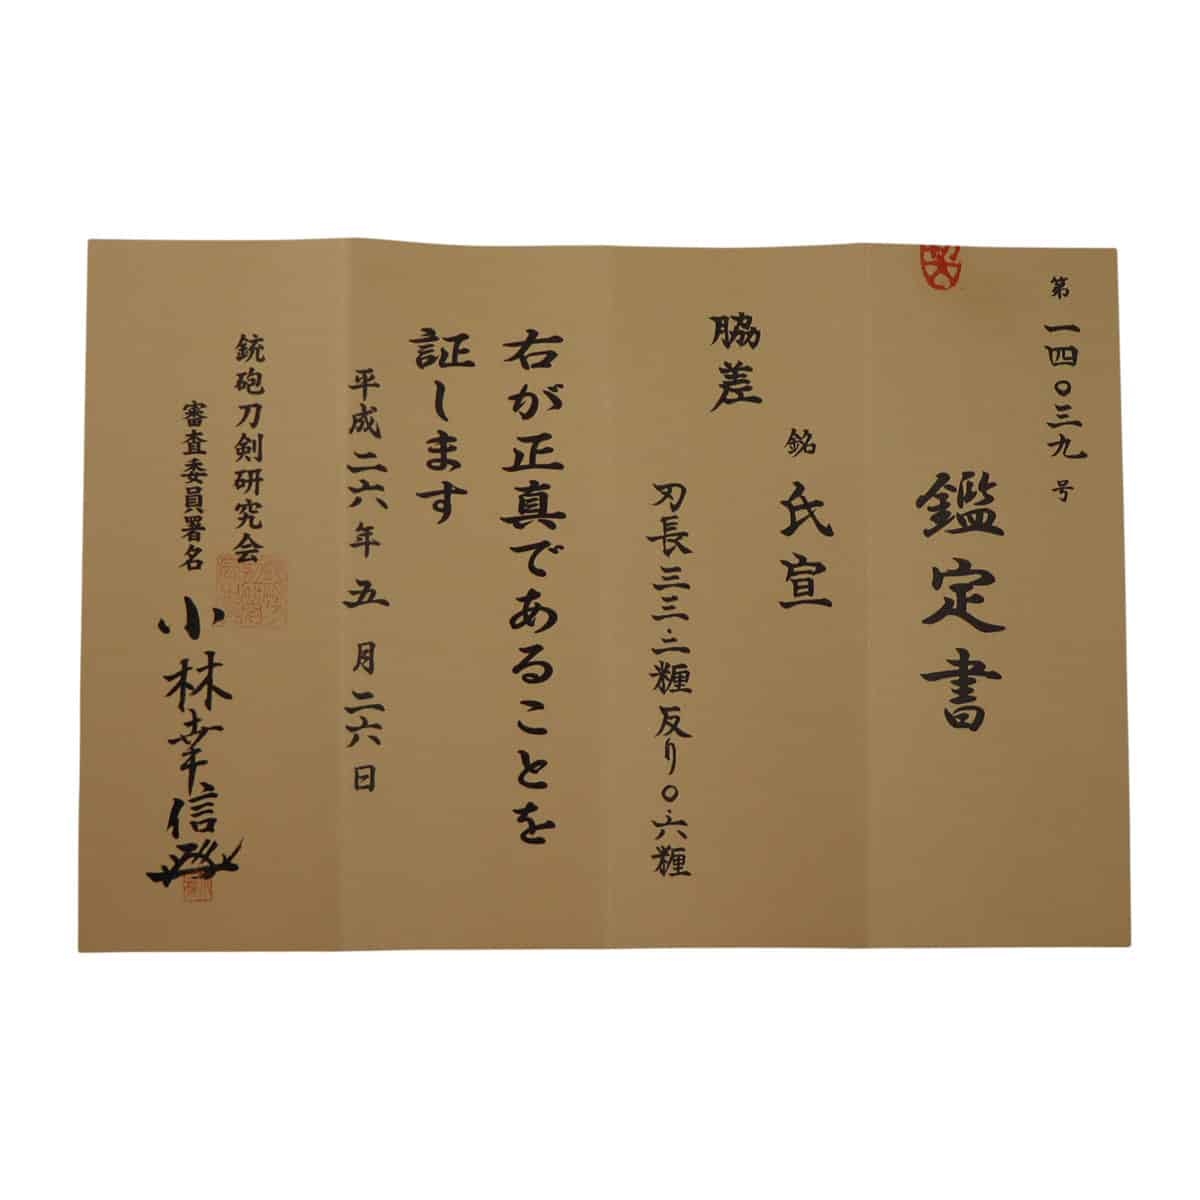 第一四〇三九号
鑑定書
銘 氏宣
脇差
刃長三三.二糎 反り〇.六糎
右が正真であることを
証します
平成二六年五月二六日
銃砲刀剣研究会
審査委員署名 小林幸信